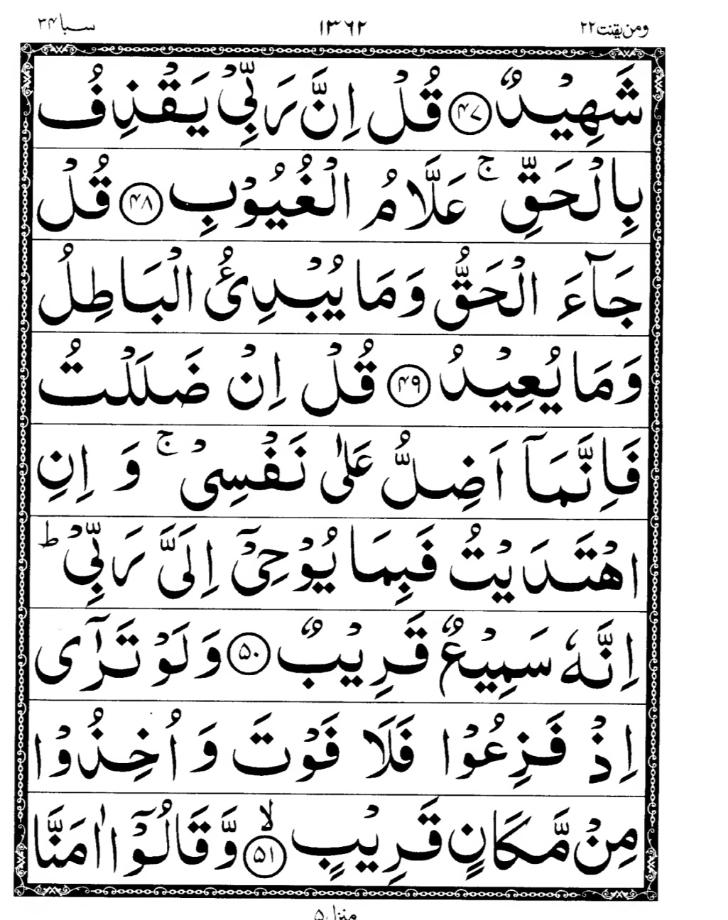 ومن یقنت۲۲ ۱۳۶۲ سبا۳۴
شَهِيْدٌ ۝۴۷ قُلْ اِنَّ رَبِّيْ يَقْذِفُ
بِالْحَقِّ ۚ عَلَّامُ الْغُيُوْبِ ۝۴۸ قُلْ
جَآءَ الْحَقُّ وَمَا يُبْدِئُ الْبَاطِلُ
وَمَا يُعِيْدُ ۝۴۹ قُلْ اِنْ ضَلَلْتُ
فَاِنَّمَآ اَضِلُّ عَلٰى نَفْسِىْ ۚ وَ اِنِ
اهْتَدَيْتُ فَبِمَا يُوْحِىْٓ اِلَىَّ رَبِّىْ ؕ
اِنَّهٗ سَمِيْعٌ قَرِيْبٌ ۝۵۰ وَلَوْ تَرٰٓى
اِذْ فَزِعُوْا فَلَا فَوْتَ وَ اُخِذُوْا
مِنْ مَّكَانٍ قَرِيْبٍ ۝۵۱ ۙ وَّ قَالُوْٓا اٰمَنَّا
منزل ۵